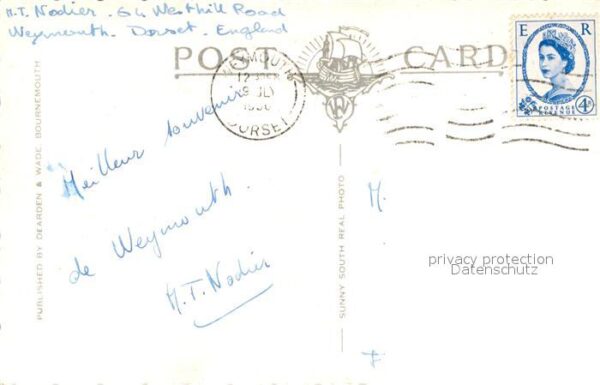 M.T. Nodier. 64 Westhill Road
Weymouth. Dorset. England
POST CARD
E R
POSTAGE
REVENUE
4D
WEYMOUTH
12
9 JLY
DORSET
Meilleur souvenir
de Weymouth.
M.T. Nodier
M.
PUBLISHED BY DEARDEN & WADE BOURNEMOUTH
SUNNY SOUTH REAL PHOTO
privacy protection
Datenschutz